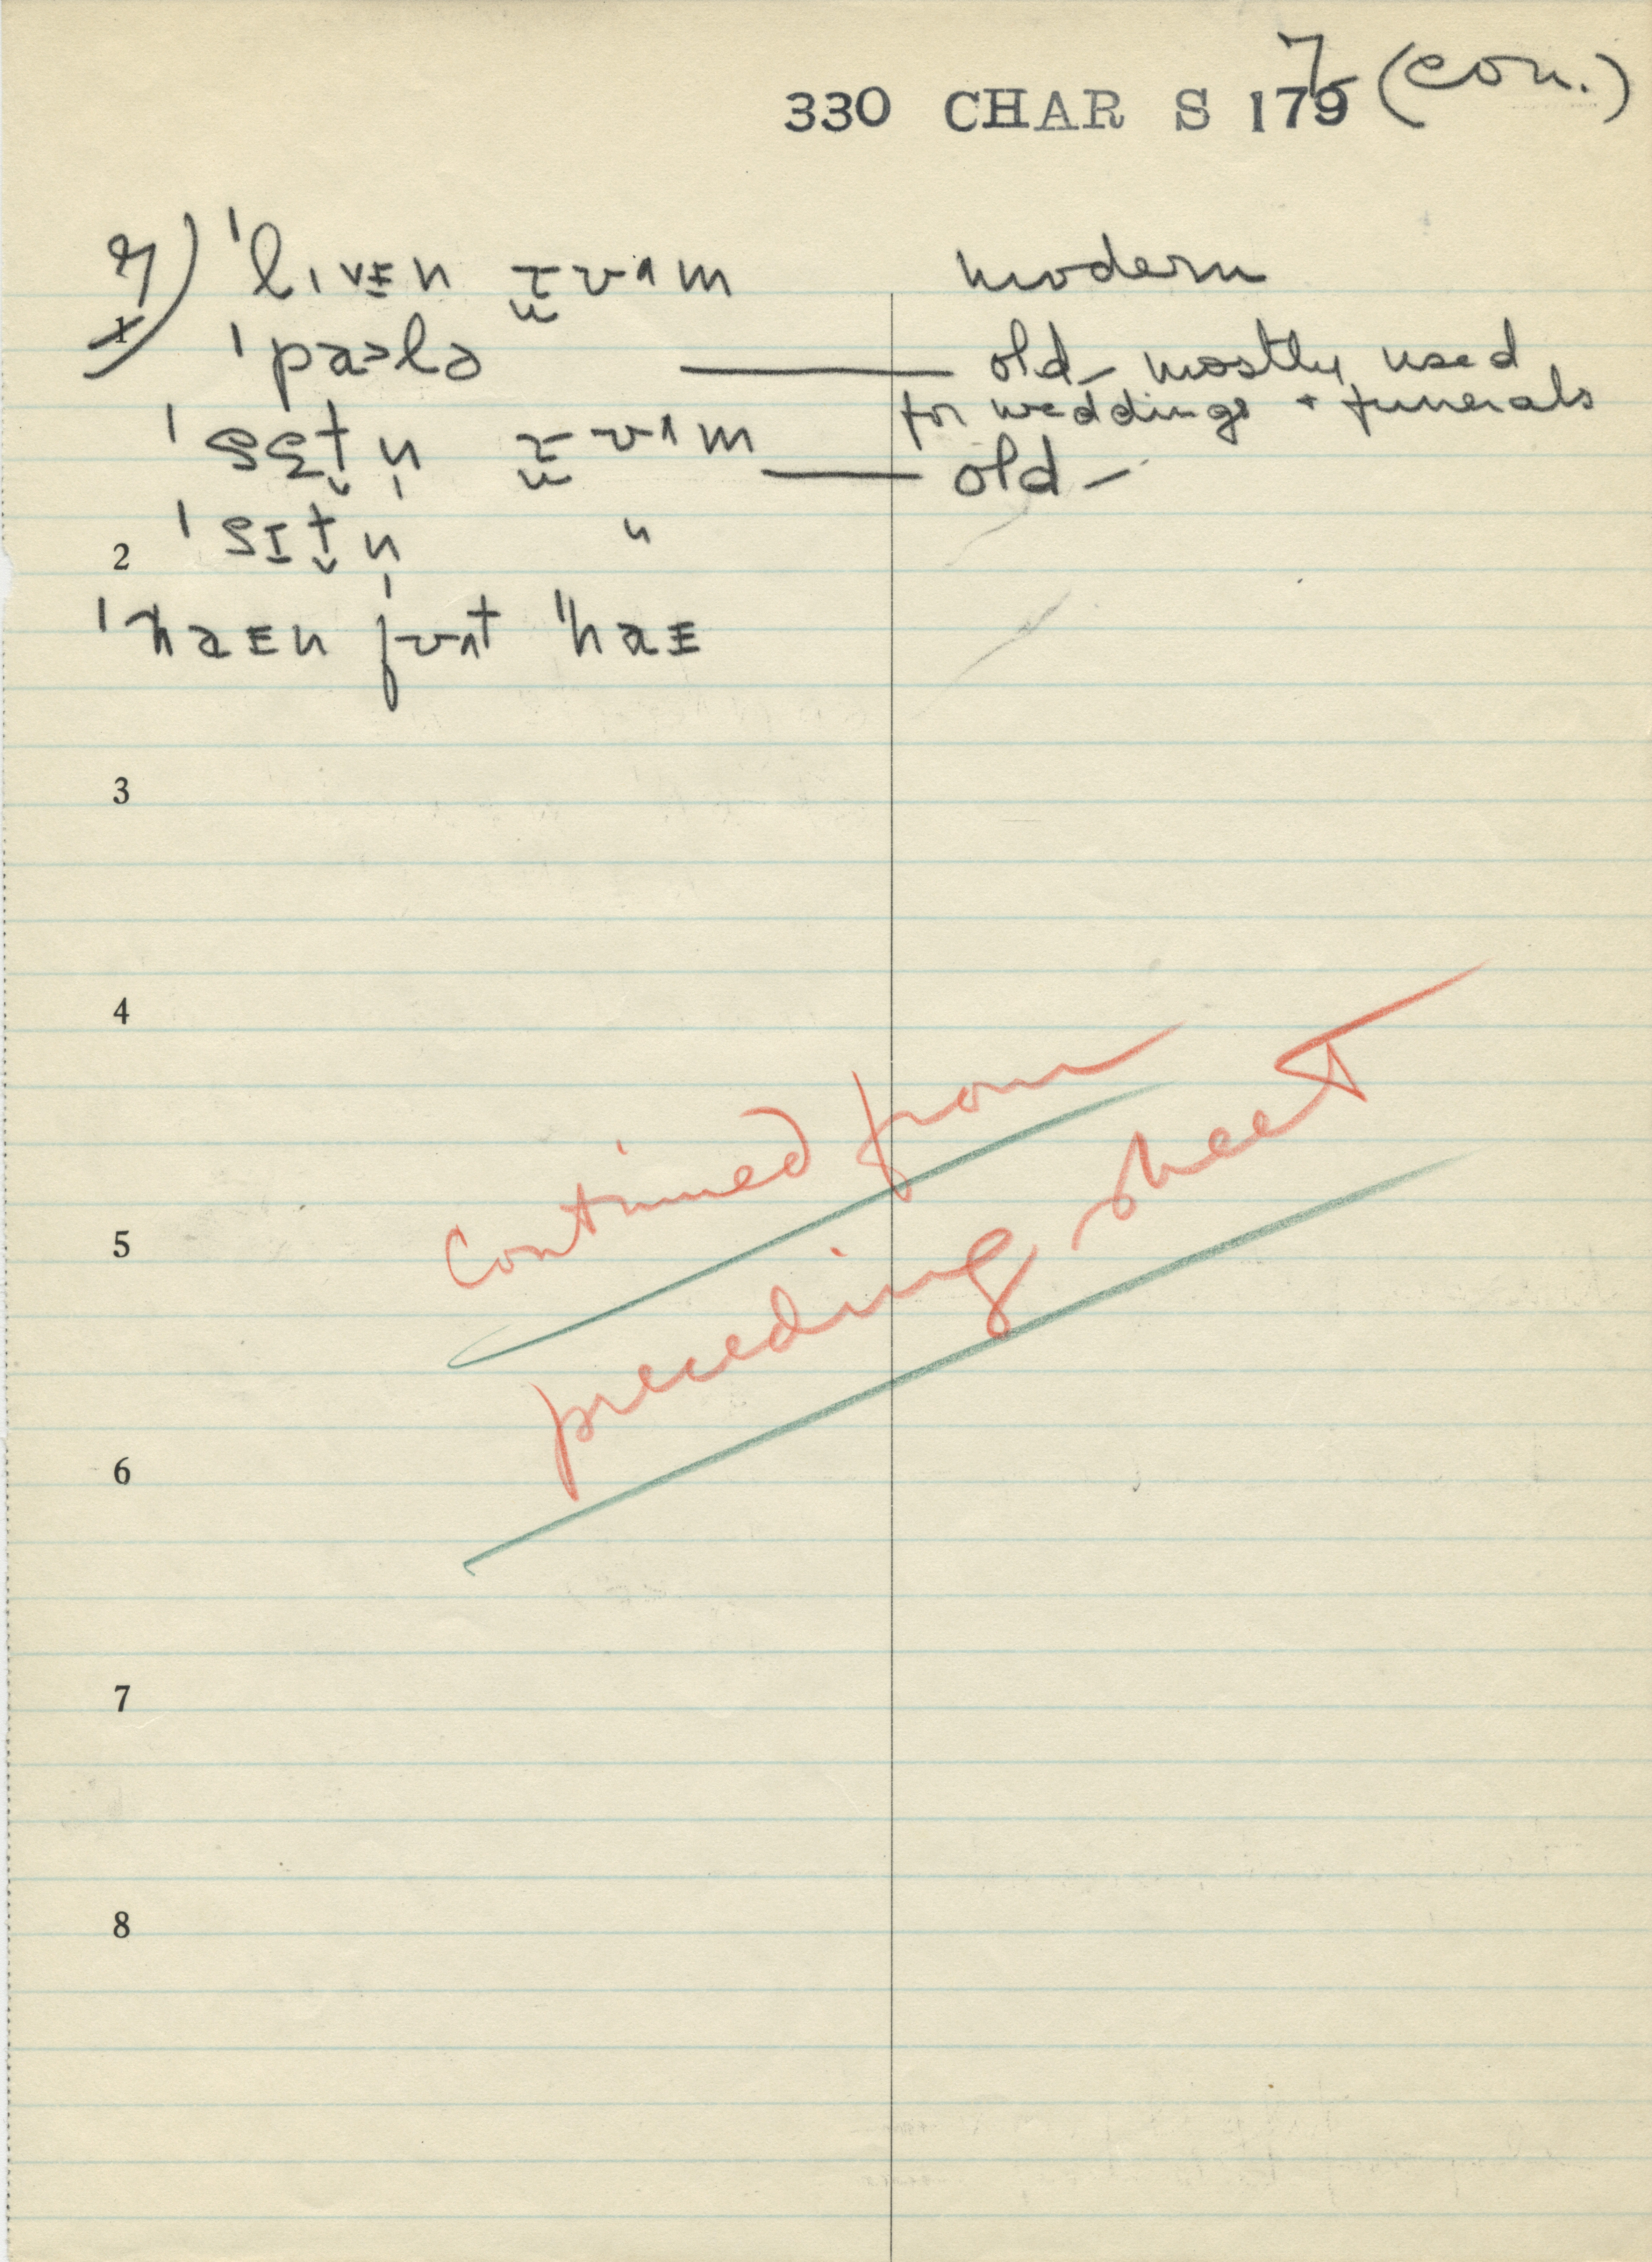 330 CHAR S 179 7 (con.)
7) ˈlɪvᵻn rʊʌm modern
1
ˈpaɔlə — old – mostly used
for weddings + funerals
ˈsɛt̬n̩ rʊʌm — old –
ˈsɪt̬n̩ "
2
ˈhaᵻn fʊʌt ˈhaᵻ
3
4
continued from
preceding sheet
5
6
7
8